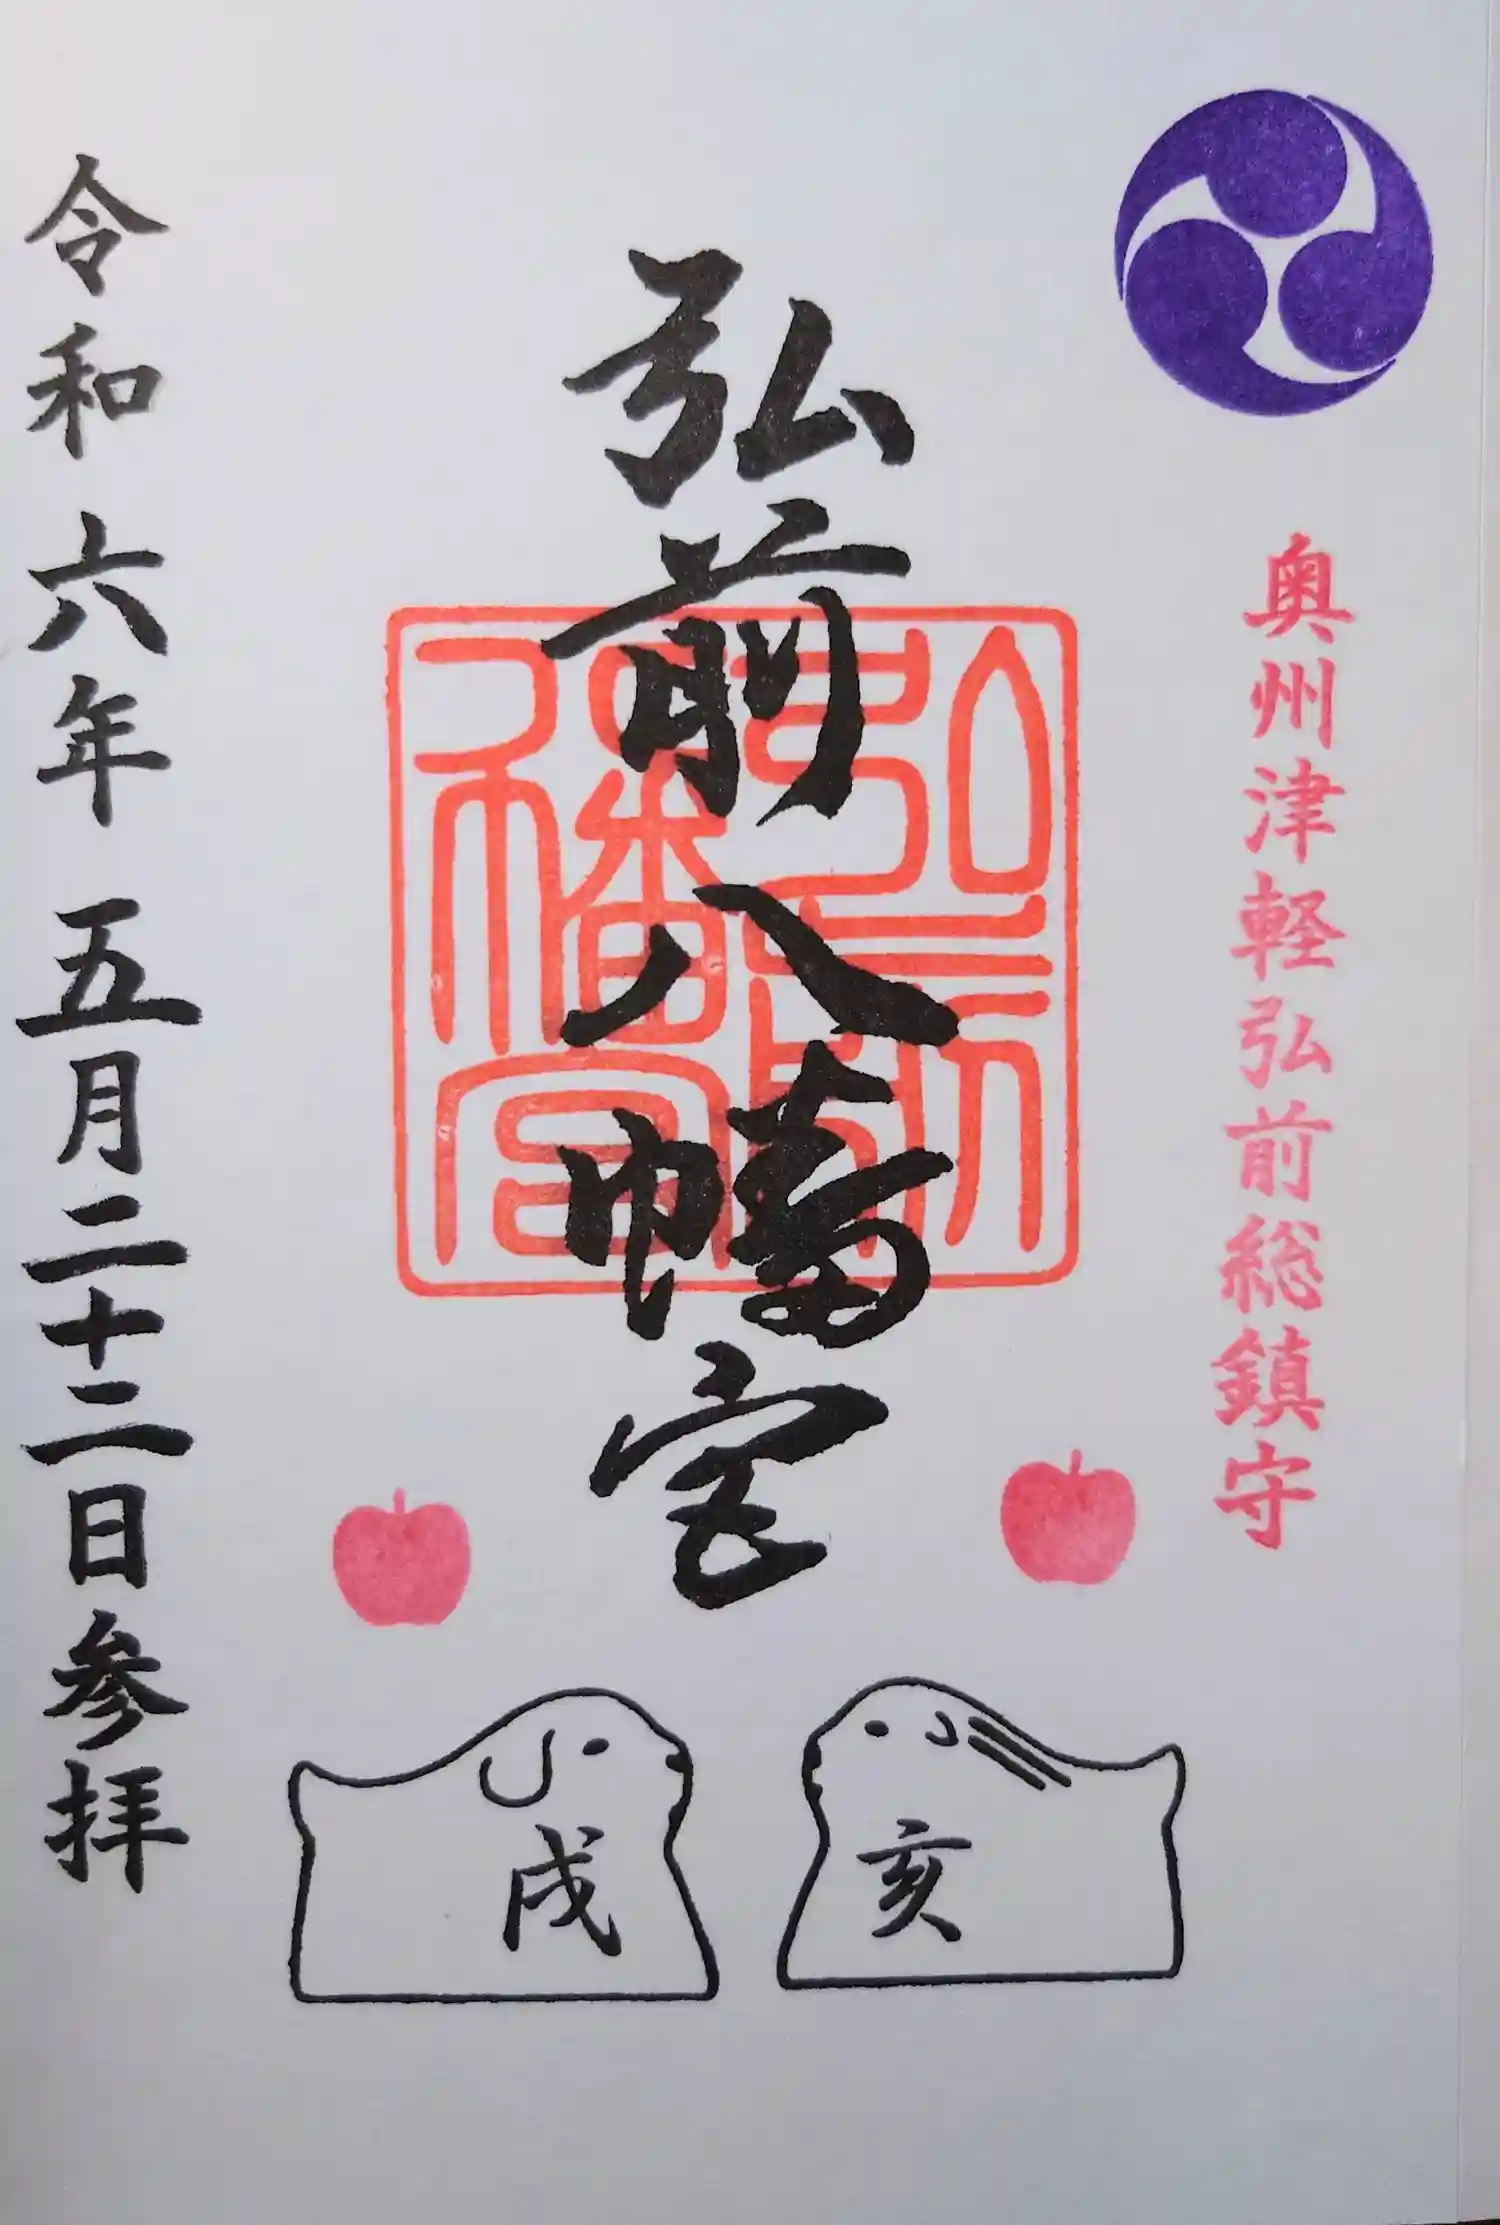 奥州津軽弘前総鎮守
弘前八幡宮
亥
戌
令和六年五月二十二日参拝